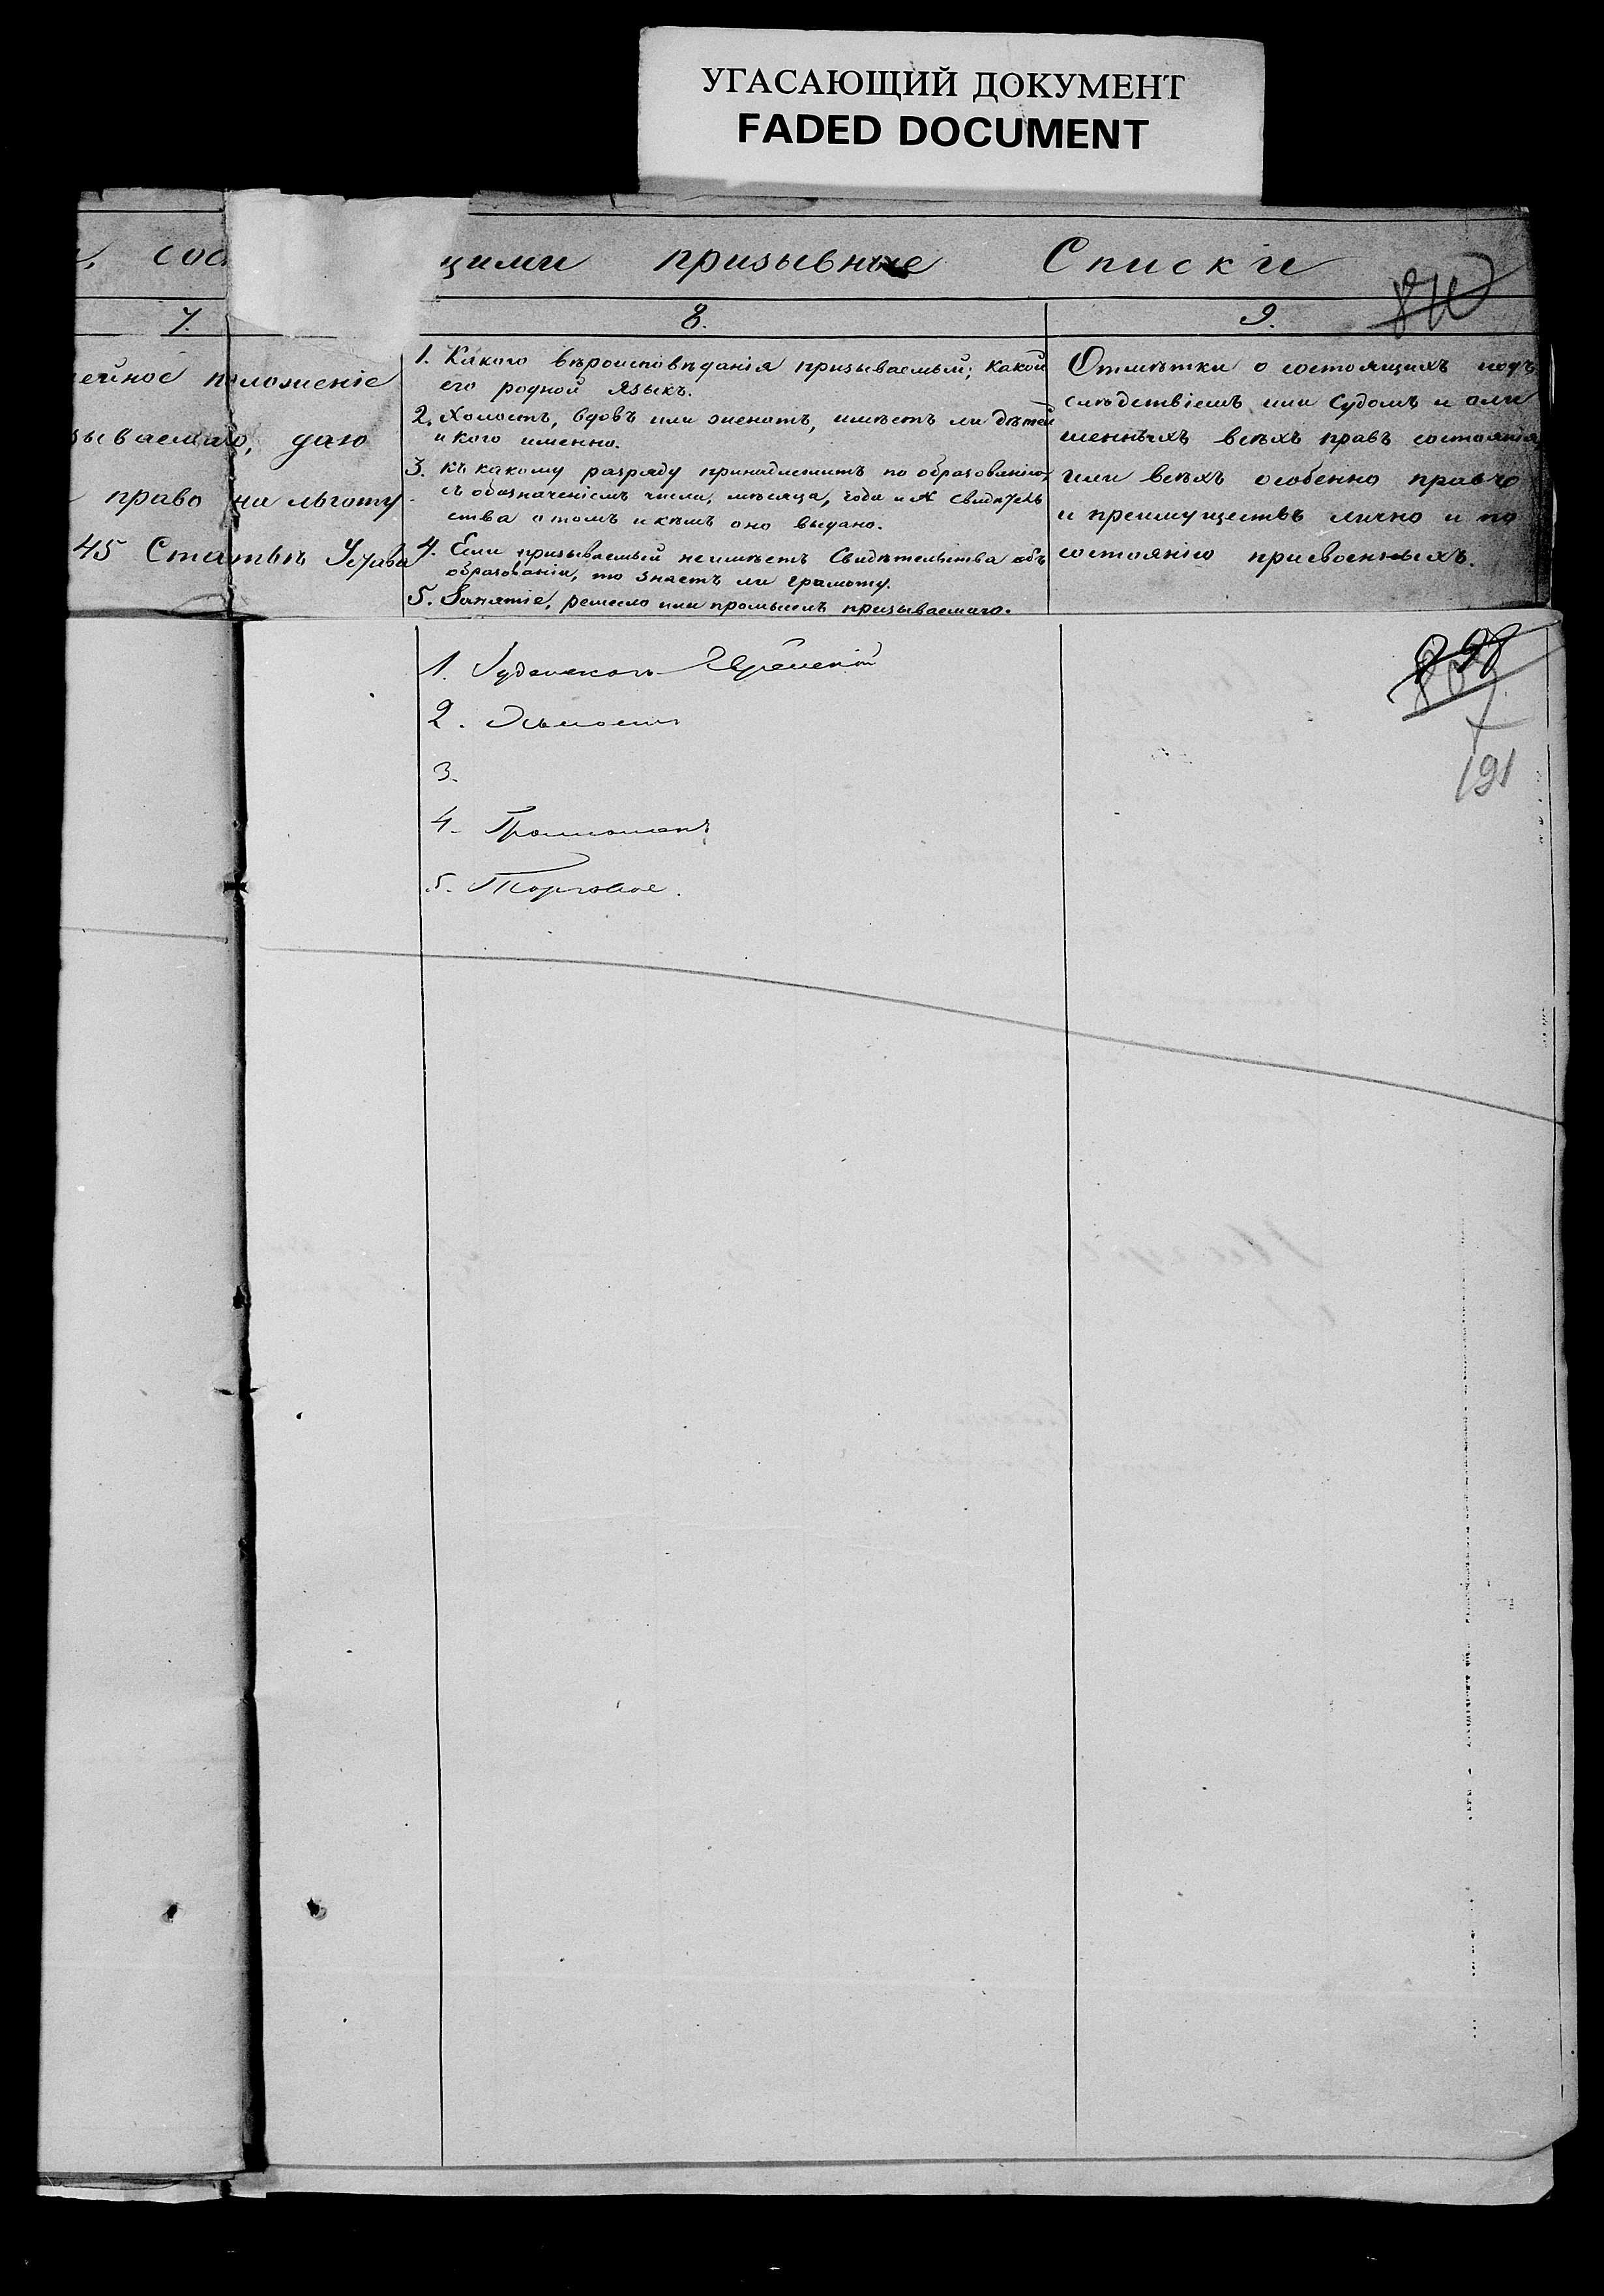 УГАСАЮЩИЙ ДОКУМЕНТ
FADED DOCUMENT
щими призывные Списки
7. 8. 9.
ейное положеніе
зываемаго, даю
право на льготу
45 Статьѣ Устава
1. Какого вѣроисповѣданія призываемый; какой
его родной языкъ.
2. Холостъ, вдовъ или женатъ, имѣетъ ли дѣтей
и кого именно.
3. Къ какому разряду принадлежитъ по образованію,
съ обозначеніемъ числа, мѣсяца, года и № свидѣтель
ства о томъ и кѣмъ оно выдано.
4. Если призываемый неимѣетъ Свидѣтельства объ
образованіи, то знаетъ ли грамоту.
5. Занятіе, ремесло или промыселъ призываемаго.
Отмѣтки о состоящихъ подъ
слѣдствіемъ или судомъ и али
шенныхъ всѣхъ правъ состоянія
или всѣхъ особенно правъ
и преимуществъ лично и по
состоянію присвоенныхъ.
1. Іудейскаго Еврейскій
2. Холостъ
3.
4. Грамотенъ
5. Торговое.
191